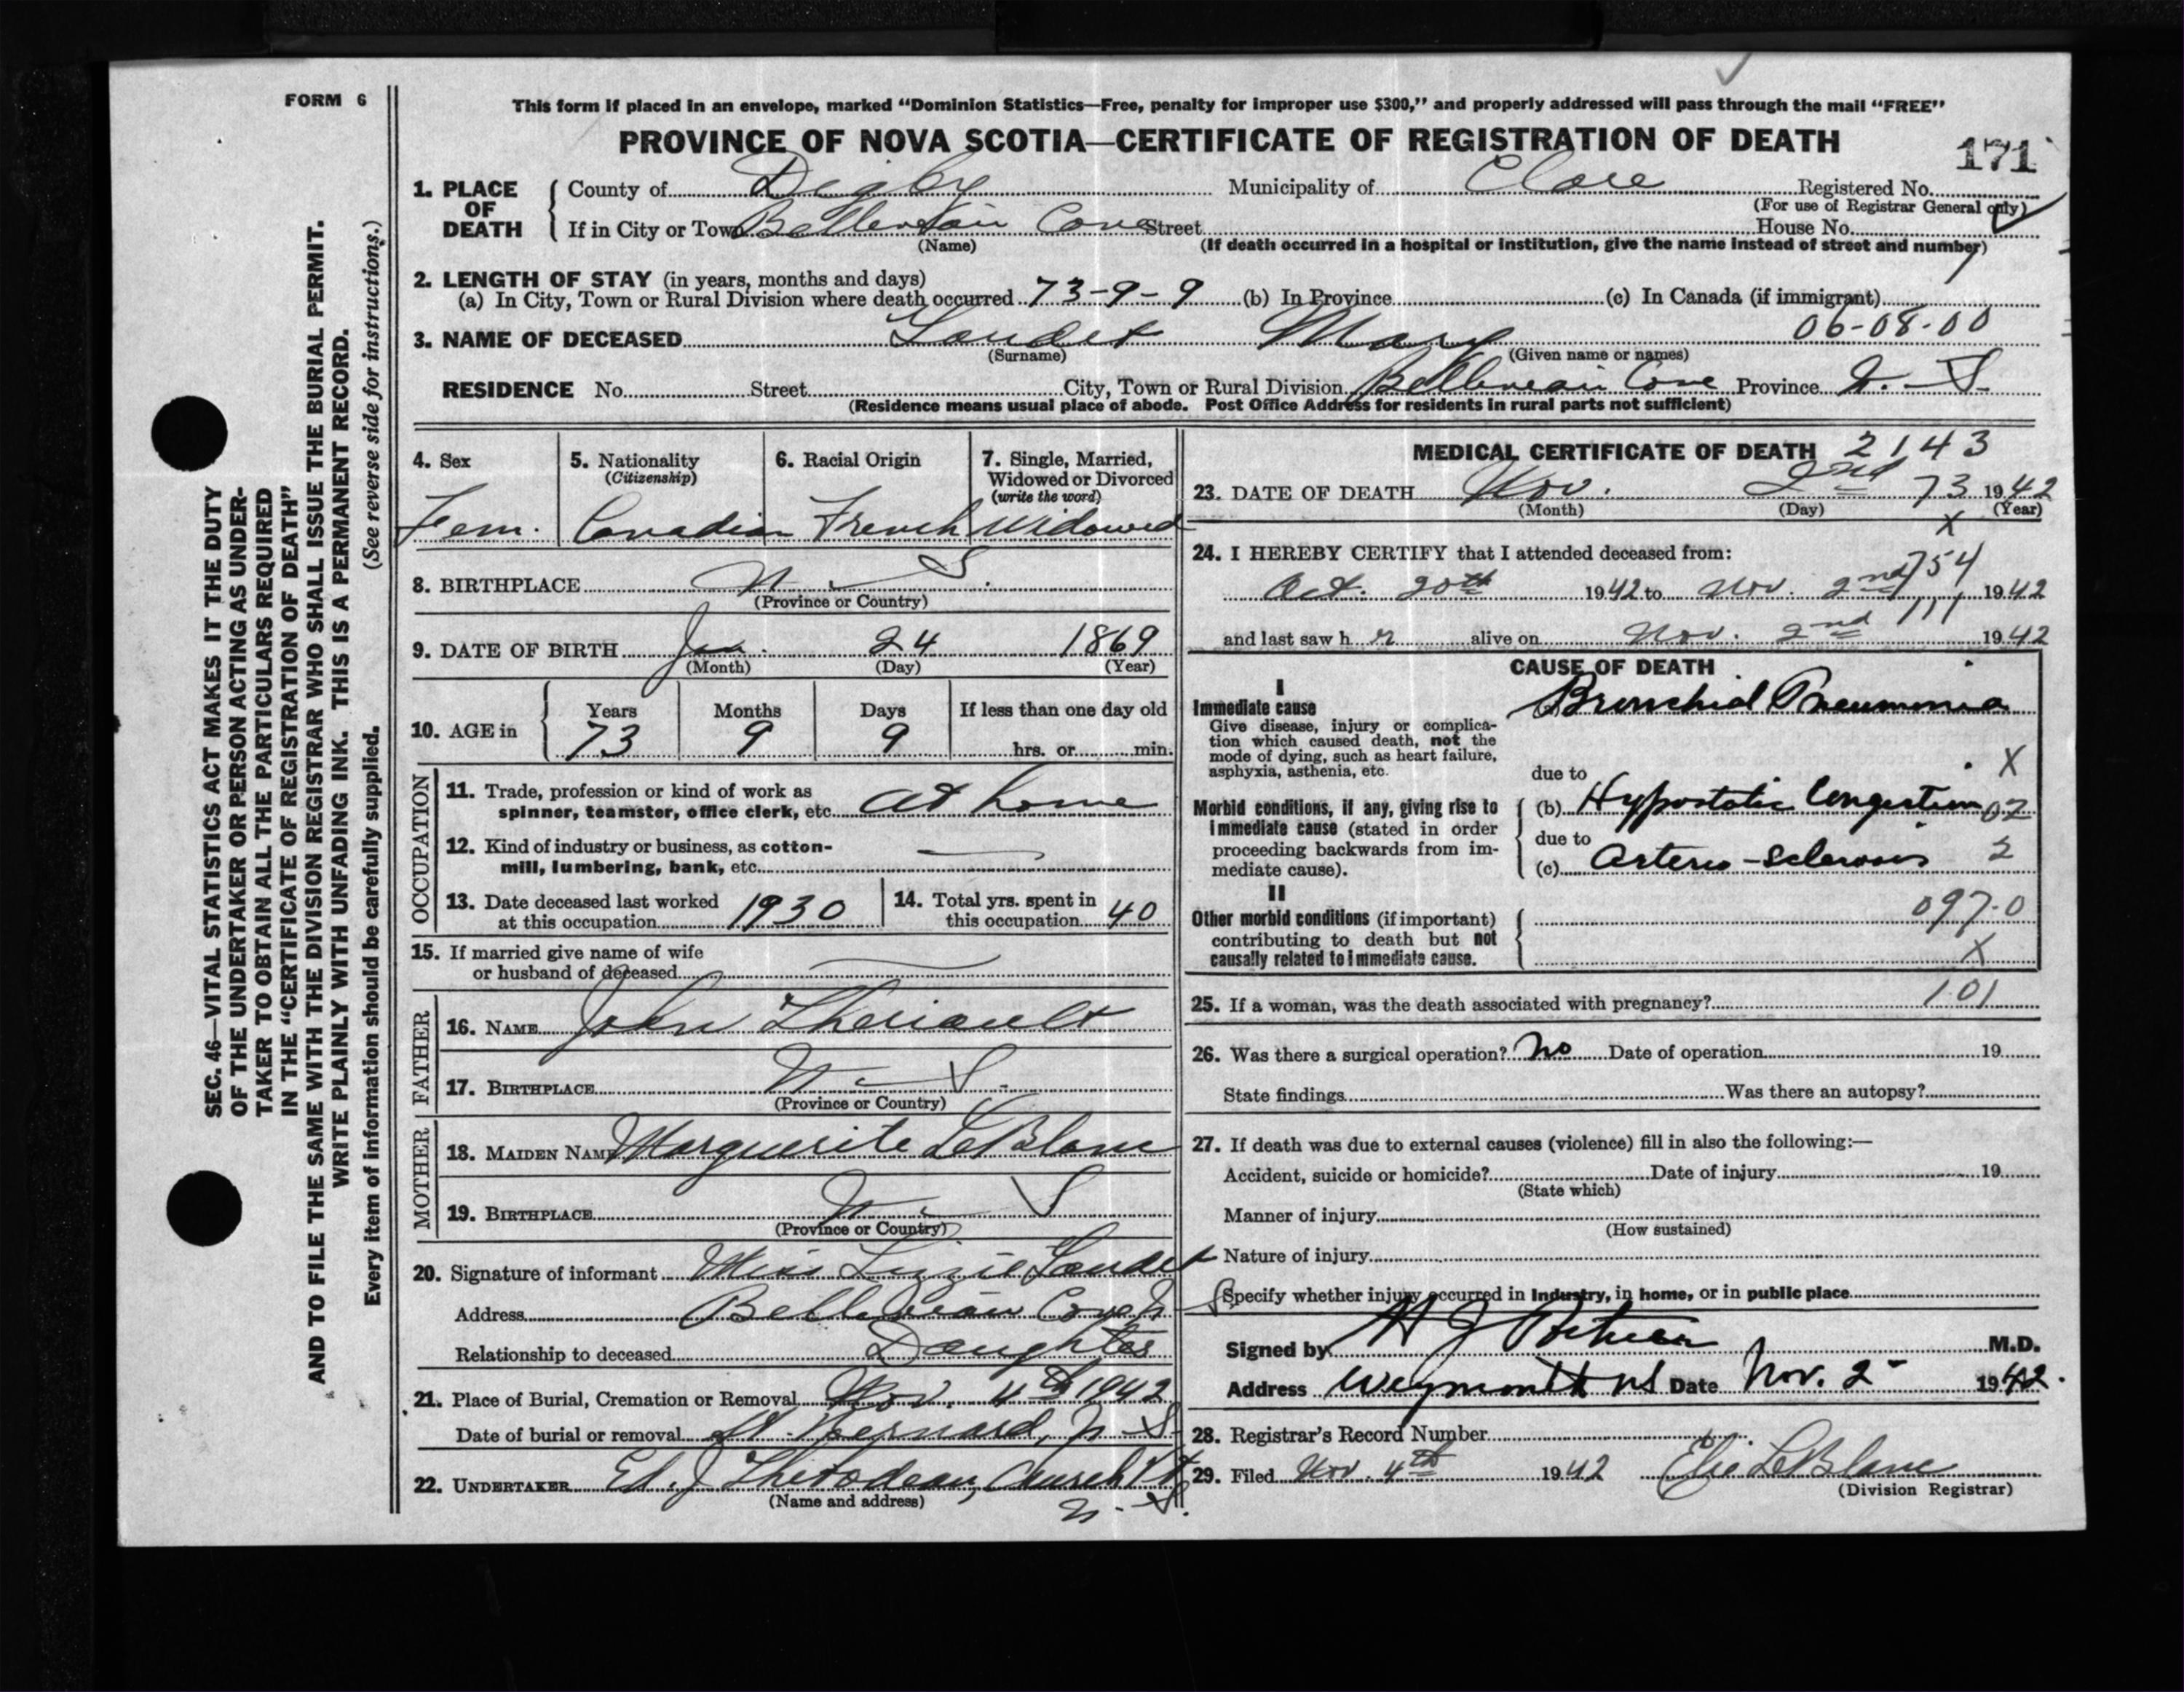 FORM 6
This form if placed in an envelope, marked “Dominion Statistics—Free, penalty for improper use $300,” and properly addressed will pass through the mail “FREE”
PROVINCE OF NOVA SCOTIA—CERTIFICATE OF REGISTRATION OF DEATH
171
1. PLACE OF DEATH County of Digby Municipality of Clare Registered No.
(For use of Registrar General only)
If in City or Town Belliveau Cove Street House No.
(Name) (If death occurred in a hospital or institution, give the name instead of street and number)
2. LENGTH OF STAY (in years, months and days)
(a) In City, Town or Rural Division where death occurred 73-9-9 (b) In Province (c) In Canada (if immigrant)
06-08-00
3. NAME OF DECEASED Gaudet Mary
(Surname) (Given name or names)
RESIDENCE No. Street City, Town or Rural Division Belliveau Cove Province N.S.
(Residence means usual place of abode. Post Office Address for residents in rural parts not sufficient)
4. Sex 5. Nationality (Citizenship) 6. Racial Origin 7. Single, Married, Widowed or Divorced (write the word)
Fem. Canadian French Widowed
8. BIRTHPLACE N.S.
(Province or Country)
9. DATE OF BIRTH Jan. 24 1869
(Month) (Day) (Year)
10. AGE in Years Months Days If less than one day old
73 9 9 hrs. or min.
OCCUPATION
11. Trade, profession or kind of work as
spinner, teamster, office clerk, etc. at home
12. Kind of industry or business, as cotton-
mill, lumbering, bank, etc. —
13. Date deceased last worked
at this occupation 1930
14. Total yrs. spent in
this occupation 40
15. If married give name of wife
or husband of deceased —
FATHER
16. NAME John Theriault
17. BIRTHPLACE N.S.
(Province or Country)
MOTHER
18. MAIDEN NAME Marguerite LeBlanc
19. BIRTHPLACE N.S.
(Province or Country)
20. Signature of informant Miss Lizzie Gaudet
Address Belliveau Cove N.S.
Relationship to deceased Daughter
21. Place of Burial, Cremation or Removal Nov. 4th 1942
Date of burial or removal St. Bernard, N.S.
22. UNDERTAKER Ed. J. Thibodeau, Church Pt.
(Name and address) N.S.
MEDICAL CERTIFICATE OF DEATH 2143
23. DATE OF DEATH Nov. 2nd 73 1942
(Month) (Day) (Year)
X
24. I HEREBY CERTIFY that I attended deceased from:
754
Oct. 20th 1942 to Nov. 2nd 1942
111
and last saw h r alive on Nov. 2nd 1942
CAUSE OF DEATH
I
Immediate cause Bronchial Pneumonia
Give disease, injury or complica-
tion which caused death, not the
mode of dying, such as heart failure,
asphyxia, asthenia, etc.
due to X
Morbid conditions, if any, giving rise to
immediate cause (stated in order
proceeding backwards from im-
mediate cause).
(b) Hypostatic Congestion 02
due to
(c) Arterio-sclerosis 2
II
Other morbid conditions (if important)
contributing to death but not
causally related to immediate cause.
097-0
X
25. If a woman, was the death associated with pregnancy? 101
26. Was there a surgical operation? No Date of operation 19
State findings Was there an autopsy?
27. If death was due to external causes (violence) fill in also the following:—
Accident, suicide or homicide? Date of injury 19
(State which)
Manner of injury
(How sustained)
Nature of injury
Specify whether injury occurred in Industry, in home, or in public place
Signed by H J M.D.
Address Weymouth NS Date Nov. 2 1942.
28. Registrar's Record Number
29. Filed Nov. 4th 1942 Elie LeBlanc
(Division Registrar)
SEC. 46—VITAL STATISTICS ACT MAKES IT THE DUTY
OF THE UNDERTAKER OR PERSON ACTING AS UNDER-
TAKER TO OBTAIN ALL THE PARTICULARS REQUIRED
IN THE “CERTIFICATE OF REGISTRATION OF DEATH”
AND TO FILE THE SAME WITH THE DIVISION REGISTRAR WHO SHALL ISSUE THE BURIAL PERMIT.
WRITE PLAINLY WITH UNFADING INK. THIS IS A PERMANENT RECORD.
Every item of information should be carefully supplied. (See reverse side for instructions.)